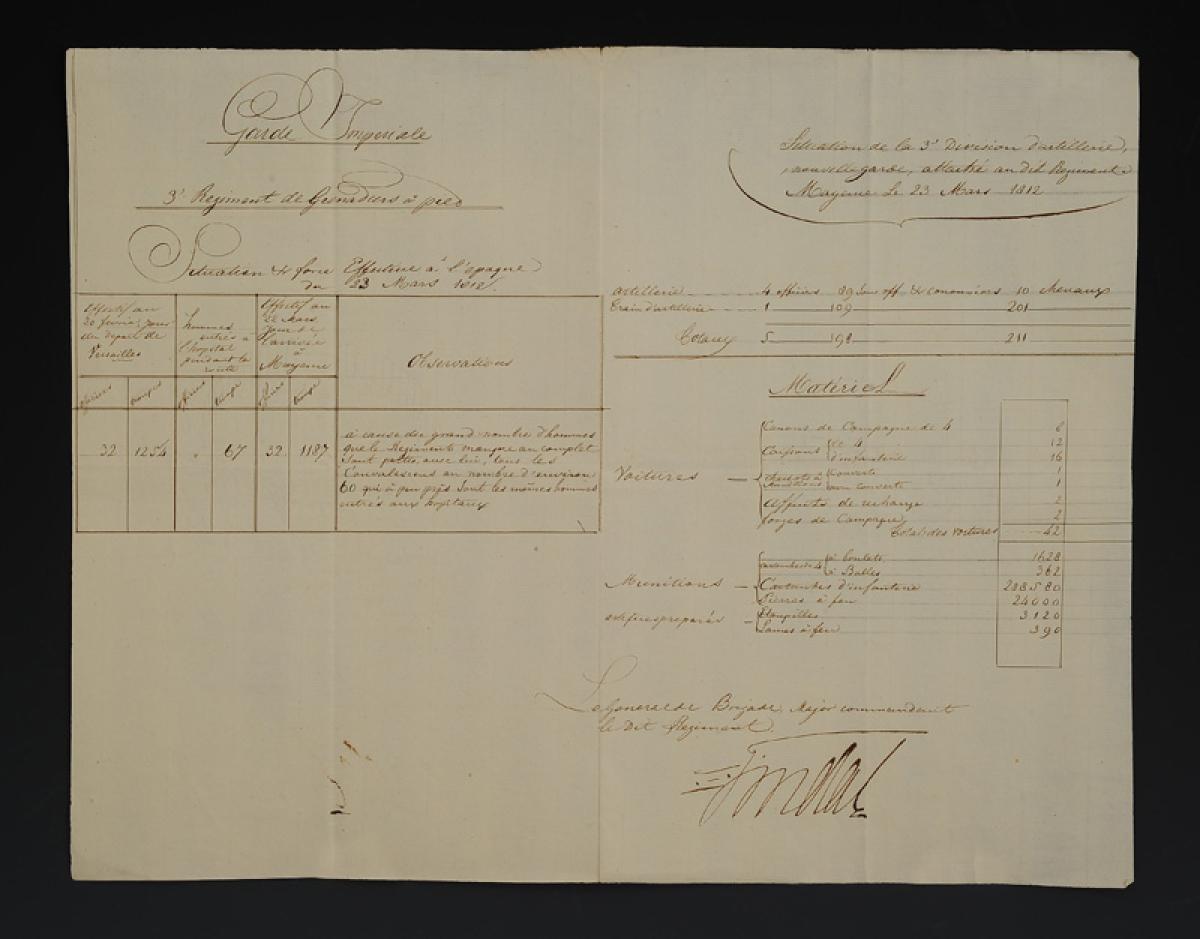 Garde Imperiale
3ᵉ Regiment de Grenadiers à pied
Situation & force Effective à l'epoque
du 23 Mars 1812.
Effectif au
20 fevrier jour
du depart de
Versailles
hommes
entrés à
l'hopital
pendant la
route
Effectif au
22 Mars
jour de
l'arrivée
à
Mayenne
Observations
officiers troupes officiers troupe officiers troupe
32 1254 " 67 32 1187
à cause du grand nombre d'hommes
que le Regiment manque au complet
sont partis, avec lui, tous les
Convalescens au nombre d'environ
60 qui à peu près sont les mêmes hommes
entrés aux hopitaux
Situation de la 3ᵉ Division d'artillerie,
nouvelle garde, attaché au dit Regiment à
Mayenne Le 23 Mars 1812
artillerie 4 officiers 89 Sous off & canonniers 10 chevaux
Train d'artillerie 1 109 201
Totaux 5 198 211
Matériel
Voitures
Canons de Campagne de 4 6
Caissons de 4 12
d'infanterie 16
chariots à munitions couverts 1
non couverts 1
Affuts de rechange 2
forges de Campagne 2
Total des voitures 42
Munitions
cartouches de 4 à boulets 1628
à Balles 362
Cartouches d'infanterie 288580
Pierres à feu 24000
artifices preparés
Etoupilles 3120
Lances à feu 390
Le General de Brigade Major commendant
le Dit Regiment.
Tindal